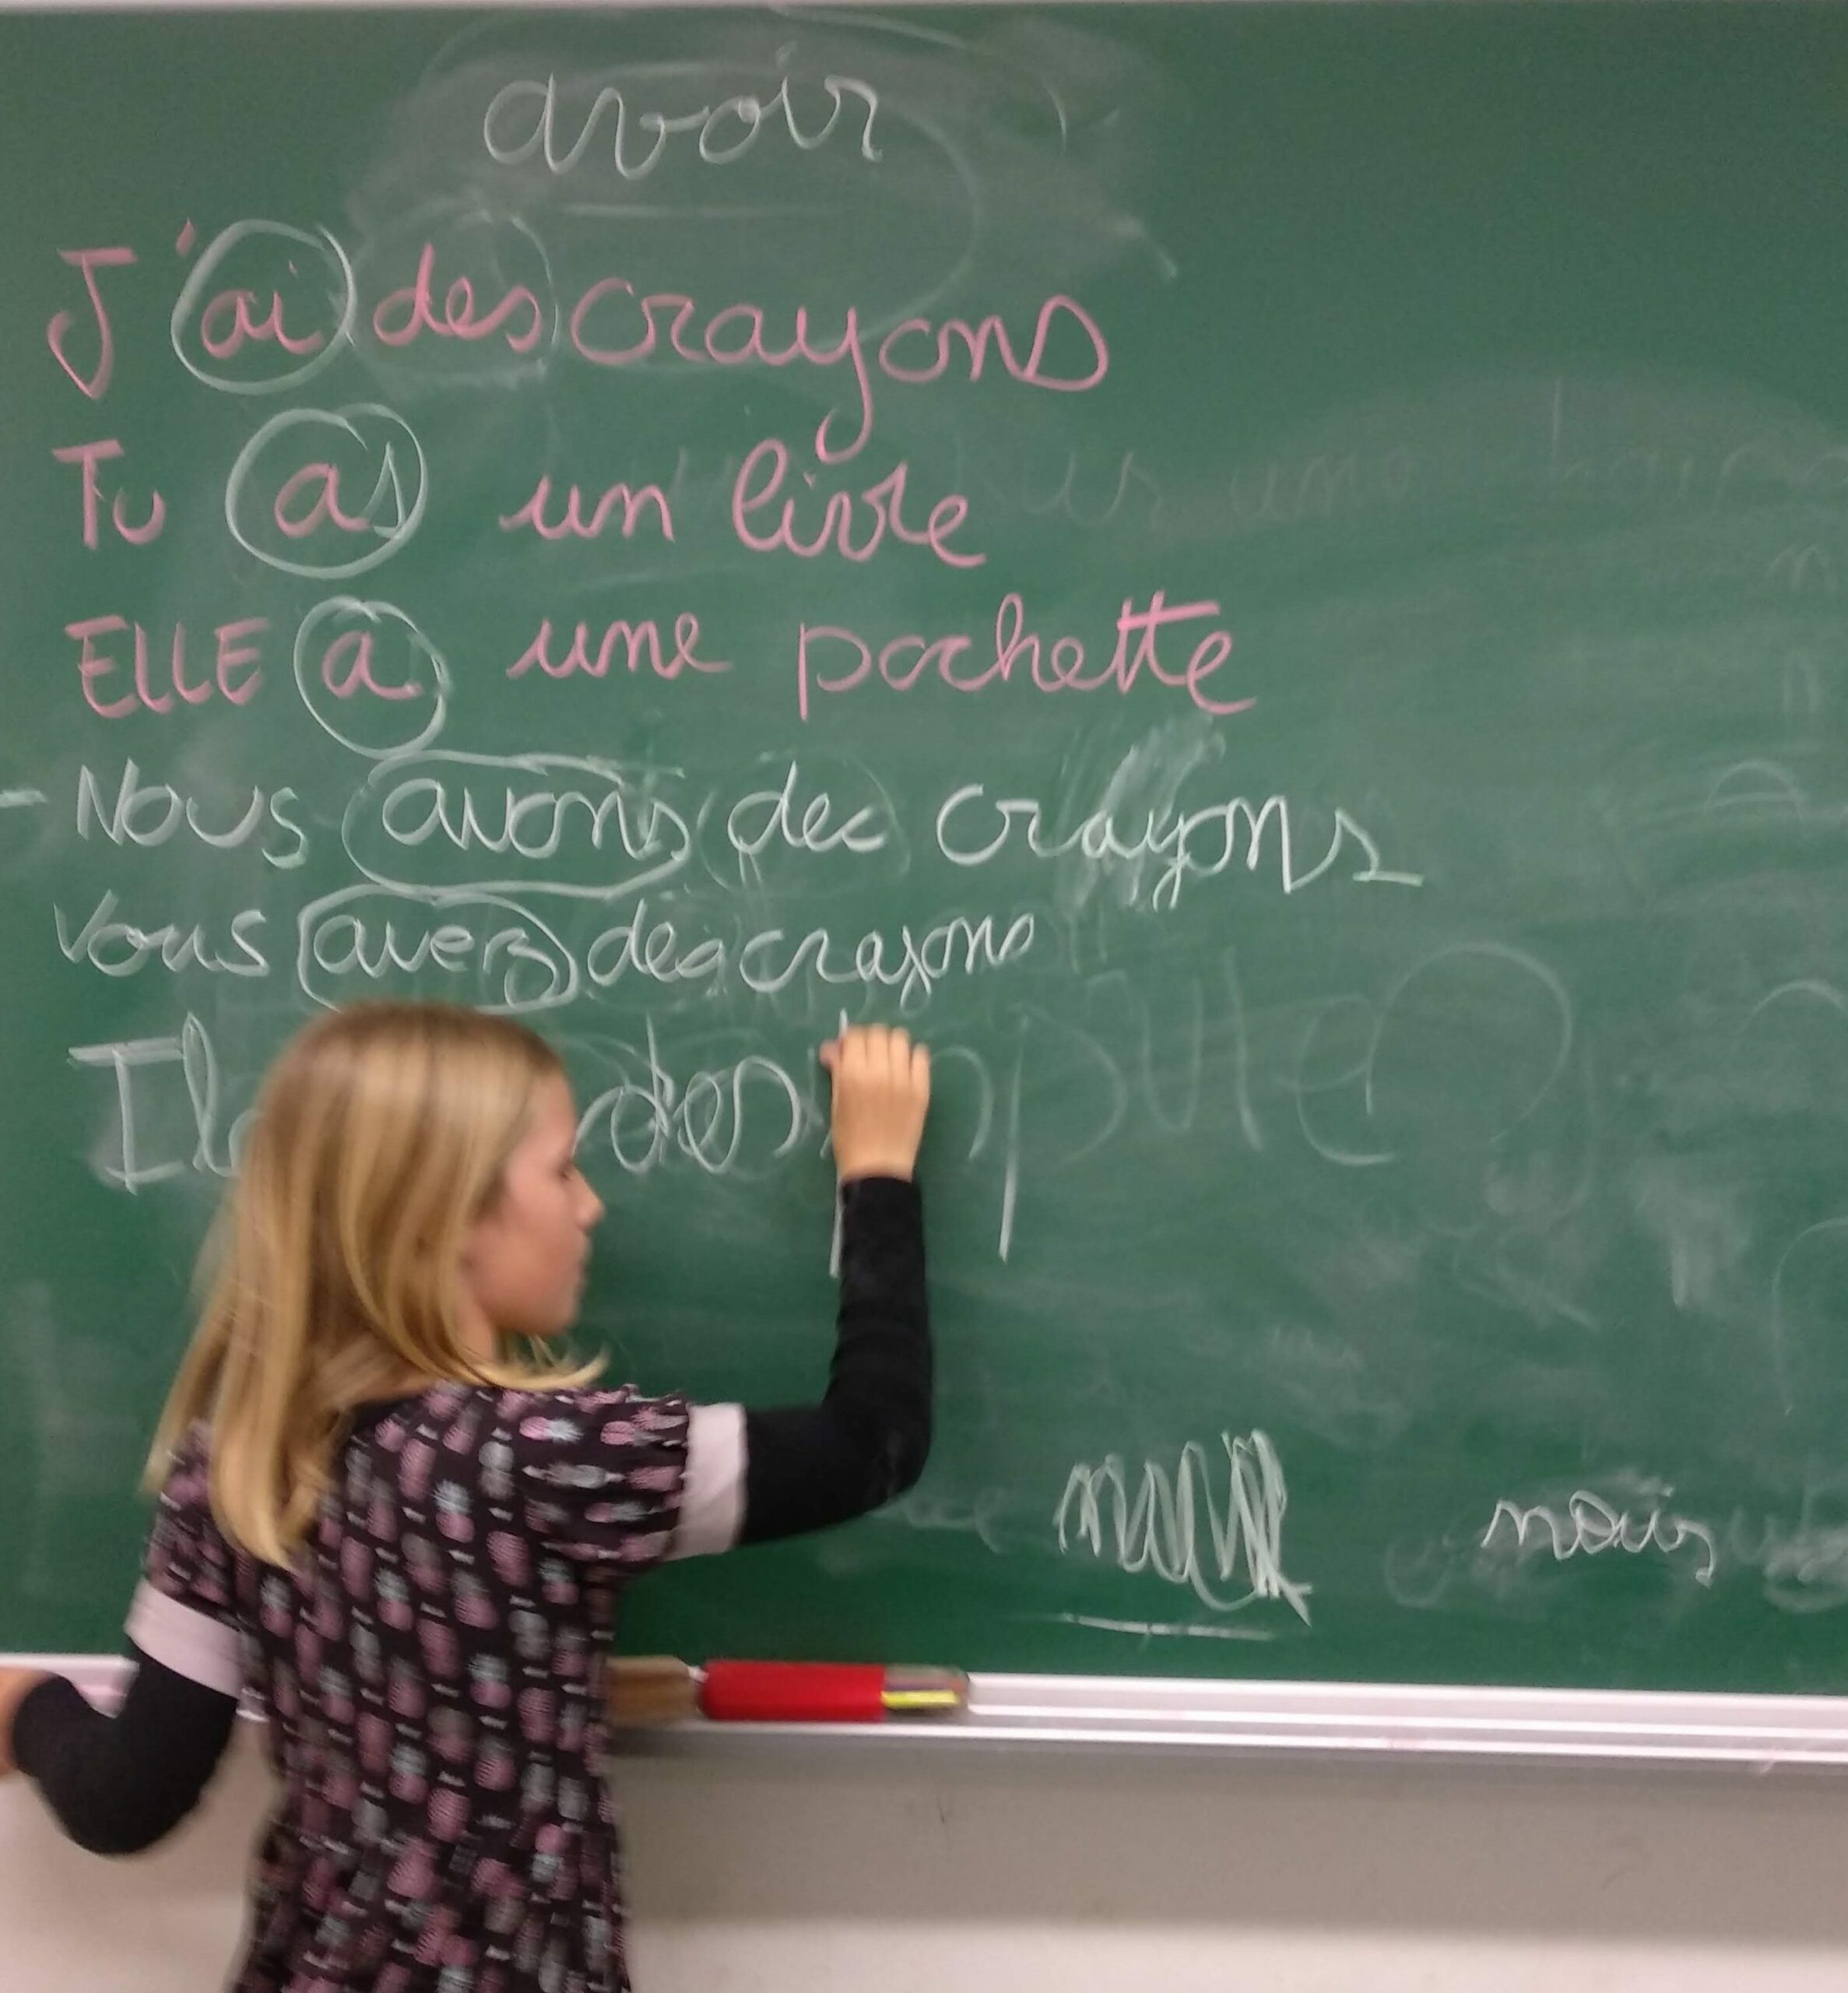 avoir
J'ai des crayons
Tu as un livre
ELLE a une pochette
- Nous avons des crayons
Vous avez des crayons
Il des
nous